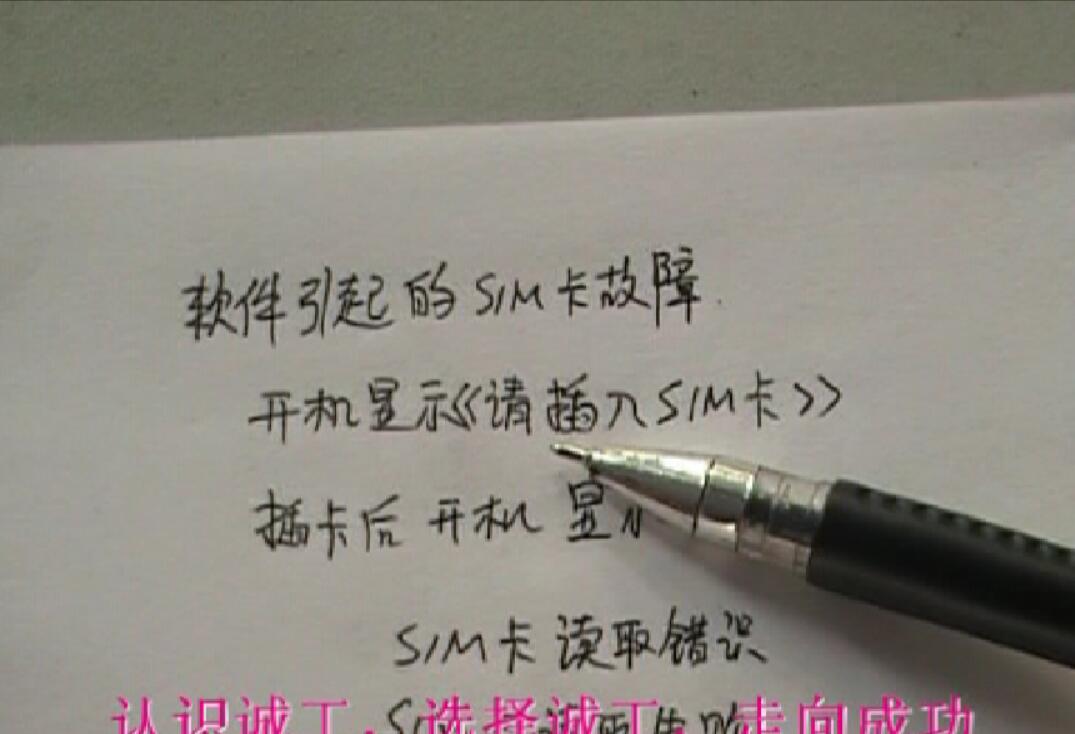 软件引起的SIM卡故障.
开机显示《请插入SIM卡》
插卡后开机显
SIM卡读取错识
认识诚工,选择诚工,走向成功